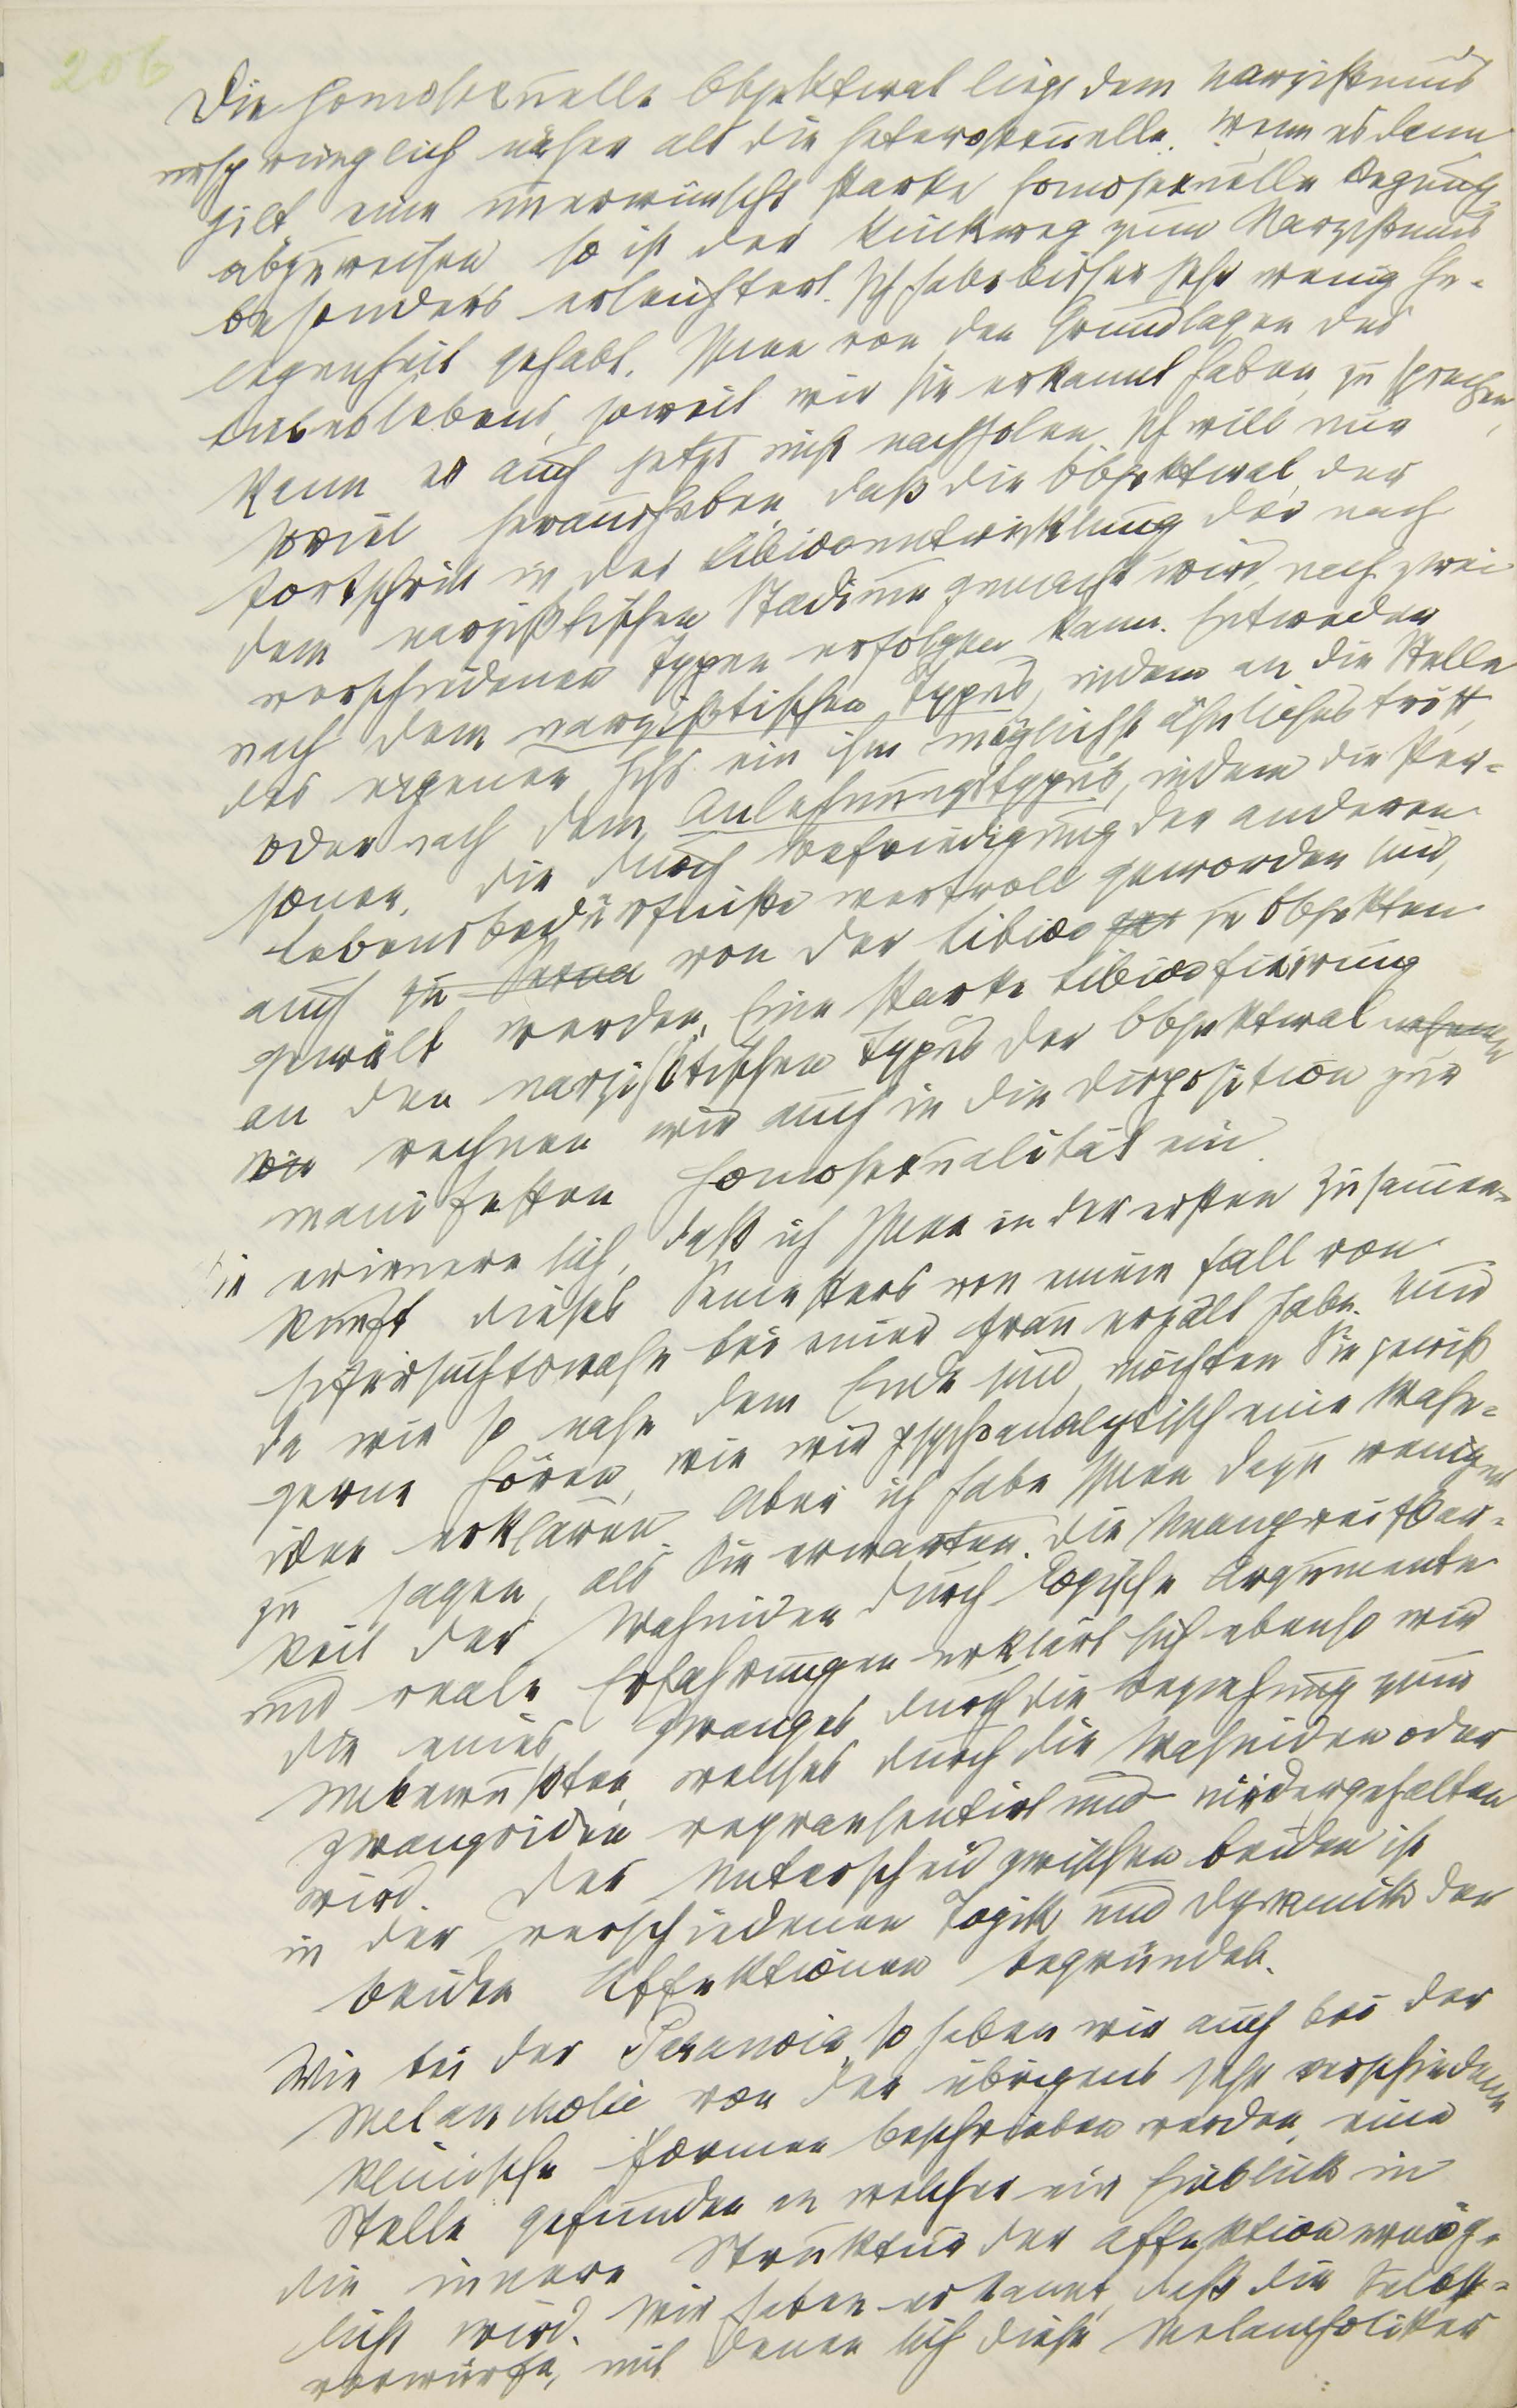 206
Die homosexuelle Objektwal liegt dem Narzißmus
ursprünglich näher als die heterosexuelle. Wenn es dann
gilt eine unerwünscht starke homosexuelle Regung
abzuweisen so ist der Rückweg zum Narzißmus
besonders erleichtert. Ich habe bisher sehr wenig Ge-
legenheit gehabt, Ihnen von den Grundlagen des
Liebeslebens, soweit wir sie erkannt haben, zu sprechen,
kann es auch jetzt nicht nachholen. Ich will nur
soviel herausheben, daß die Objektwal, der
Fortschritt in der Libidoentwicklung der nach
dem narzißtischen Stadium gemacht wird, nach zwei
verschiedenen Typen erfolgen kann. Entweder
nach dem narzißtischen Typus, indem an die Stelle
des eigenen Ichs ein ihm möglichst ähnliches tritt,
oder nach dem Anlehnungstypus, indem die Per-
sonen, die durch Befriedigung der anderen
Lebensbedürfnisse wertvoll geworden sind,
auch zu von der Libido zu Objekten
gewält werden. Eine starke Libidofixirung
an den narzißtischen Typus der Objektwal nehmen
wir rechnen wir auch in die Disposition zur
manifesten Homosexualität ein.
Sie erinnern sich, daß ich Ihnen in der ersten Zusammen-
kunft dieses Semesters von einem Fall von
Eifersuchtswahn bei einer Frau erzält habe. Nun
da wir so nahe dem Ende sind, möchten Sie gewiß
gerne hören, wie wir psychoanalytisch eine Wahn-
idee erklären. Aber ich habe Ihnen dazu weniger
zu sagen, als Sie erwarten. Die Unangreifbar-
keit der Wahnidee durch logische Argumente
und reale Erfahrungen erklärt sich ebenso wie
die eines Zwanges durch die Beziehung zum
Unbewußten, welches durch die Wahnidee oder
Zwangsidee repraesentirt und niedergehalten
wird. Der Unterscheid zwischen beiden ist
in der verschiedenen Topik und Dynamik der
beiden Affektionen begründet.
Wie bei der Paranoia, so haben wir auch bei der
Melancholie von der übrigens sehr verschiedene
klinische Formen beschrieben werden, eine
Stelle gefunden an welcher ein Einblick in
die innere Struktur der Affektion ermög-
licht wird. Wir haben erkannt, daß die Selbst-
vorwürfe, mit denen sich diese Melancholiker